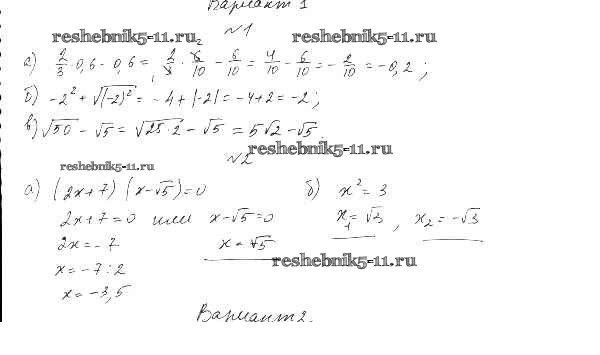 Вариант 1
№1
reshebnik5-11.ru reshebnik5-11.ru
а) 2/3 · 0,6 - 0,6 = 2/3 · 6/10 - 6/10 = 4/10 - 6/10 = - 2/10 = -0,2 ;
б) -2² + √(-2)² = -4 + |-2| = -4+2 = -2 ;
в) √50 - √5 = √25·2 - √5 = 5√2 - √5.
reshebnik5-11.ru
№2
reshebnik5-11.ru
а) (2x+7) (x-√5)=0 б) x² = 3
2x+7=0 или x-√5=0 x₁= √3 , x₂ = -√3
2x = -7 x = √5
reshebnik5-11.ru
x = -7:2
x = -3,5
Вариант 2.